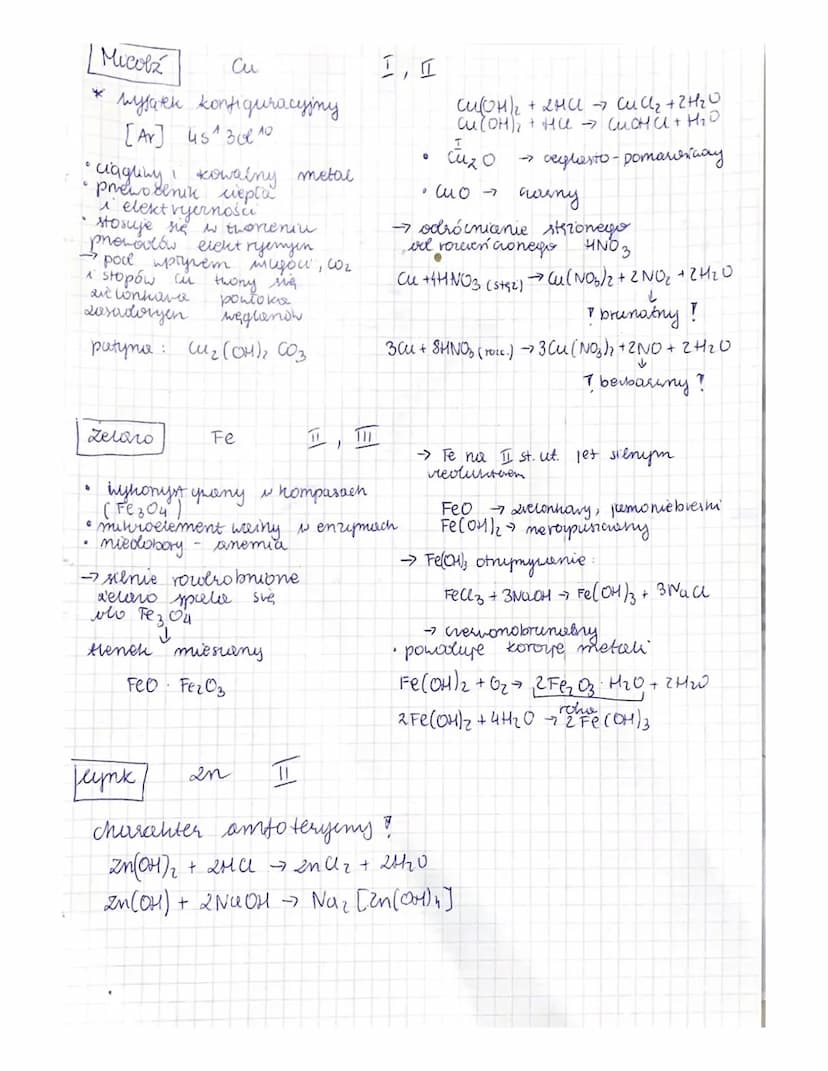 Miedź Cu I, II
* wyjątek konfiguracyjny
[Ar] 4s¹ 3d¹⁰
• ciągliwy i kowalny metal
• przewodnik ciepła
i elektryczności
• stosuje się w tworzeniu
przewodów elektrycznym
→ pod wpływem wilgoci, CO2
i stopów Cu tworzy się
zielonkawa powłoka
zasadowych węglanów
patyna: Cu₂(OH)₂ CO₃
Cu(OH)₂ + 2HCl → CuCl₂ + 2H₂O
Cu(OH)₂ + HCl → CuOHCl + H₂O
I
• Cu₂O → ceglasto-pomarańczowy
• CuO → czarny
→ odróżnianie stężonego
od rozcieńczonego HNO₃
Cu + 4HNO₃ (stęż) → Cu(NO₃)₂ + 2NO₂ + 2H₂O
↓
! brunatny !
3Cu + 8HNO₃ (rozc.) → 3Cu(NO₃)₂ + 2NO + 2H₂O
↓
! bezbarwny !
Żelazo Fe II, III
• wykorzystywany w kompasach
(Fe₃O₄)
• mikroelement ważny w enzymach
• niedobory - anemia
→ silnie rozdrobnione
żelazo spala się
do Fe₃O₄
↓
tlenek mieszany
FeO · Fe₂O₃
→ Fe na II st. ut. jest silnym
reduktorem
FeO → zielonkawy, jasnoniebieski
Fe(OH)₂ → nierozpuszczalny
→ Fe(OH)₃ otrzymywanie:
FeCl₃ + 3NaOH → Fe(OH)₃ + 3NaCl
→ czerwonobrunatny
• powoduje korozję metali
Fe(OH)₂ + O₂ → 2Fe₂O₃ · H₂O + 2H₂O
rdza
2Fe(OH)₂ + 4H₂O → 2Fe(OH)₃
cynk Zn II
charakter amfoteryczny!
Zn(OH)₂ + 2HCl → ZnCl₂ + 2H₂O
Zn(OH) + 2NaOH → Na₂[Zn(OH)₄]